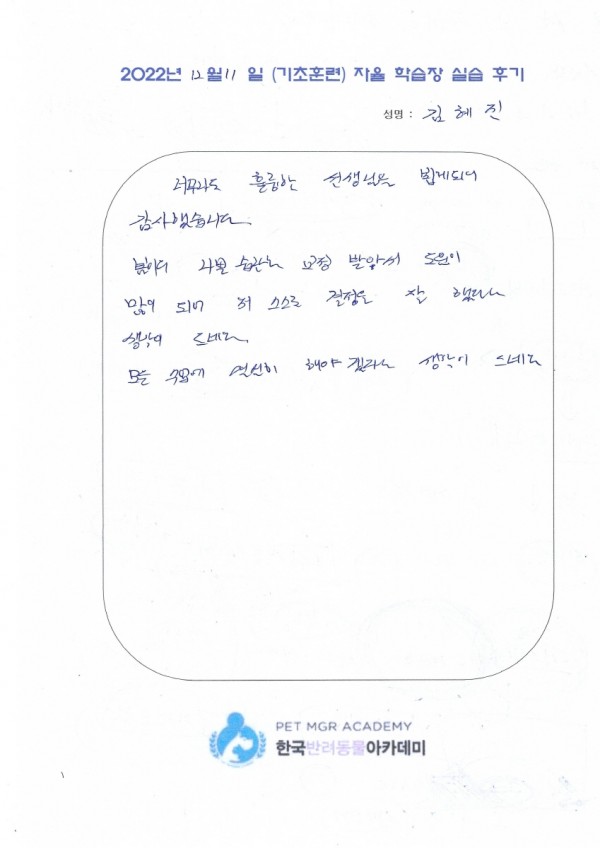 2022년 12월 11 일 (기초훈련) 자율 학습장 실습 후기
성명 : 김혜진
너무나도 훌륭한 선생님을 뵙게되어
감사했습니다.
나쁜 습관는 교정 받아서 도움이
많이 되어 저 스스로 결정을 잘 했다는
생각이 드네요.
모든 수업에 열심히 해야 겠다는 생각이 드네요
PET MGR ACADEMY
한국반려동물아카데미